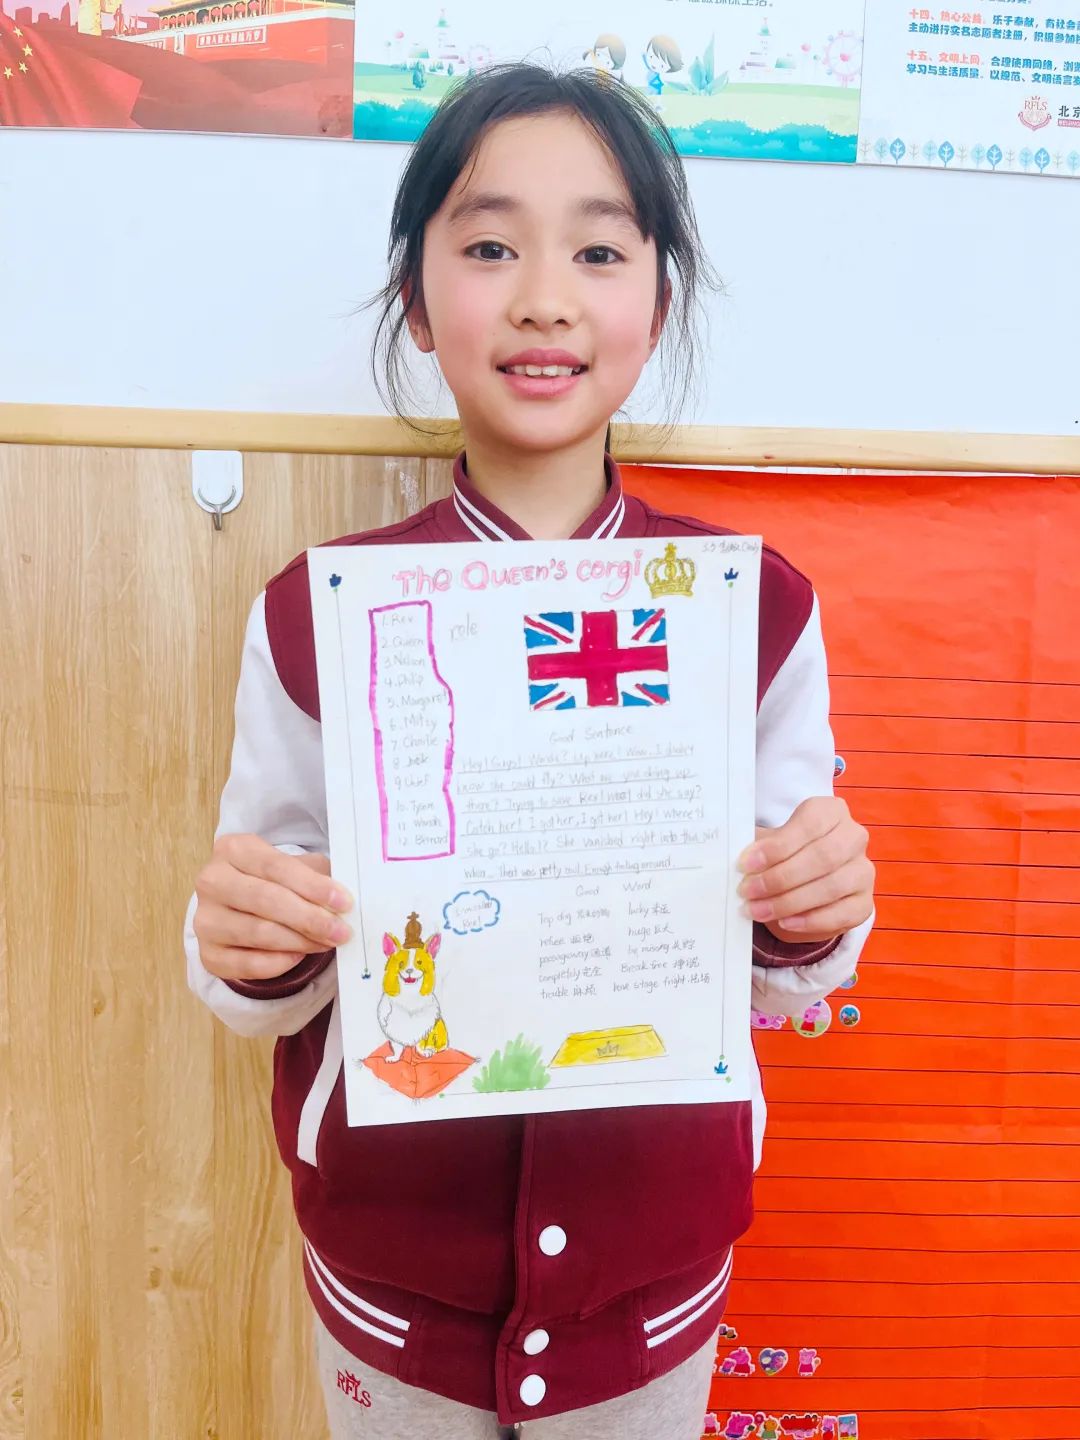 十四、热心公益。乐于奉献，有社会
主动进行实名志愿者注册，积极参加
十五、文明上网。合理使用网络，浏览
学习与生活质量。以规范、文明语言
RFLS
北京
The Queen's corgi
1. Rex
2. Queen
3. Nelson
4. Philip
5. Margaret
6. Mitzy
7. Charlie
8. Jack
9. Chief
10. Tyson
11. Wanda
12. Bernard
role
Good Sentence
Hey! Guys! Wanda? Up here! Wow, I didn't
know she could fly? What are you doing up
there? Trying to save Rex! What did she say?
Catch her! I got her, I got her! Hey! Where'd
she go? Hello!? She vanished right into thin
That was petty cruel. Enough fooling around.
Good Word
Top dog lucky 幸运
refuse 拒绝 huge 巨大
passageway 通道 be missing 失踪
completely 完全 Break time
trouble 麻烦 have stage fright 怯场
RFLS